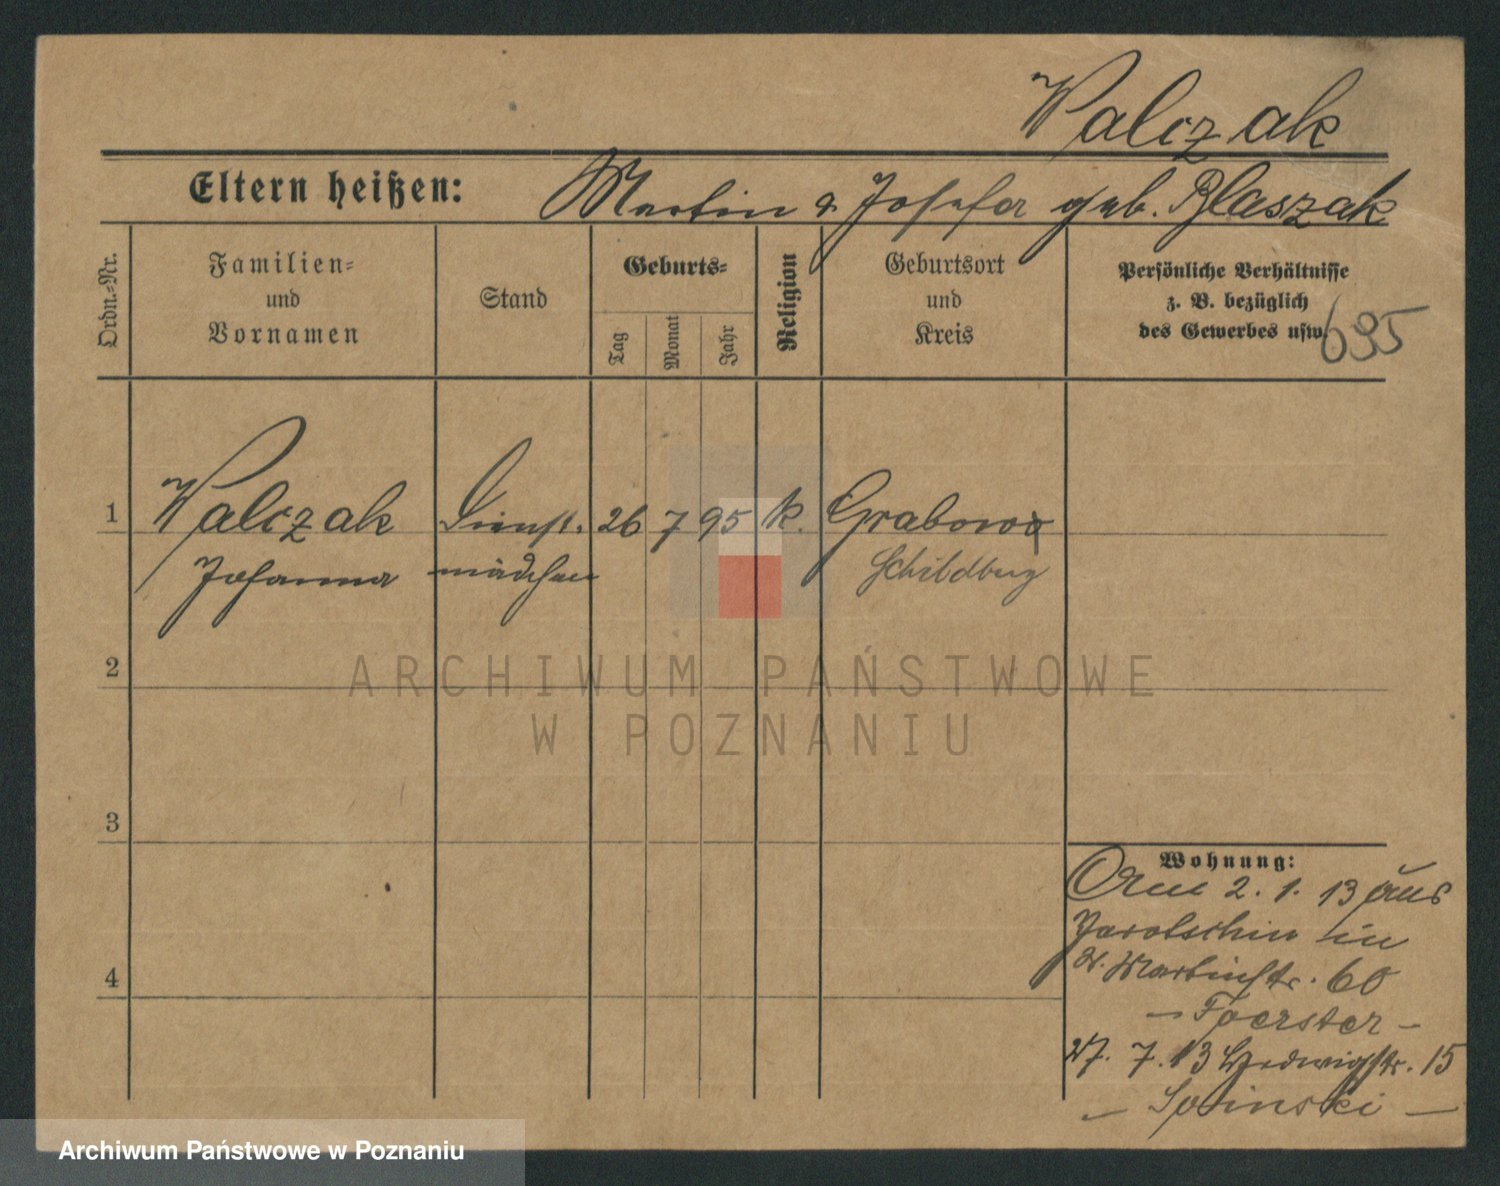 Walczak
Eltern heißen: Martin & Josefa geb. Blaszak
Ordn.-Nr.
Familien- und Vornamen
Stand
Geburts-
Tag
Monat
Jahr
Religion
Geburtsort und Kreis
Persönliche Verhältnisse
z. B. bezüglich
des Gewerbes usw.
695
1 Walczak Dienst- 26 7 95 k. Grabow
Johanna mädchen Schildberg
2
ARCHIWUM PAŃSTWOWE
W POZNANIU
3
4
Wohnung:
Am 2. 1. 13 aus
Jarotschin in
St. Martinstr. 60
- Foerster -
27. 7. 13 Hedwigstr. 15
Archiwum Państwowe w Poznaniu